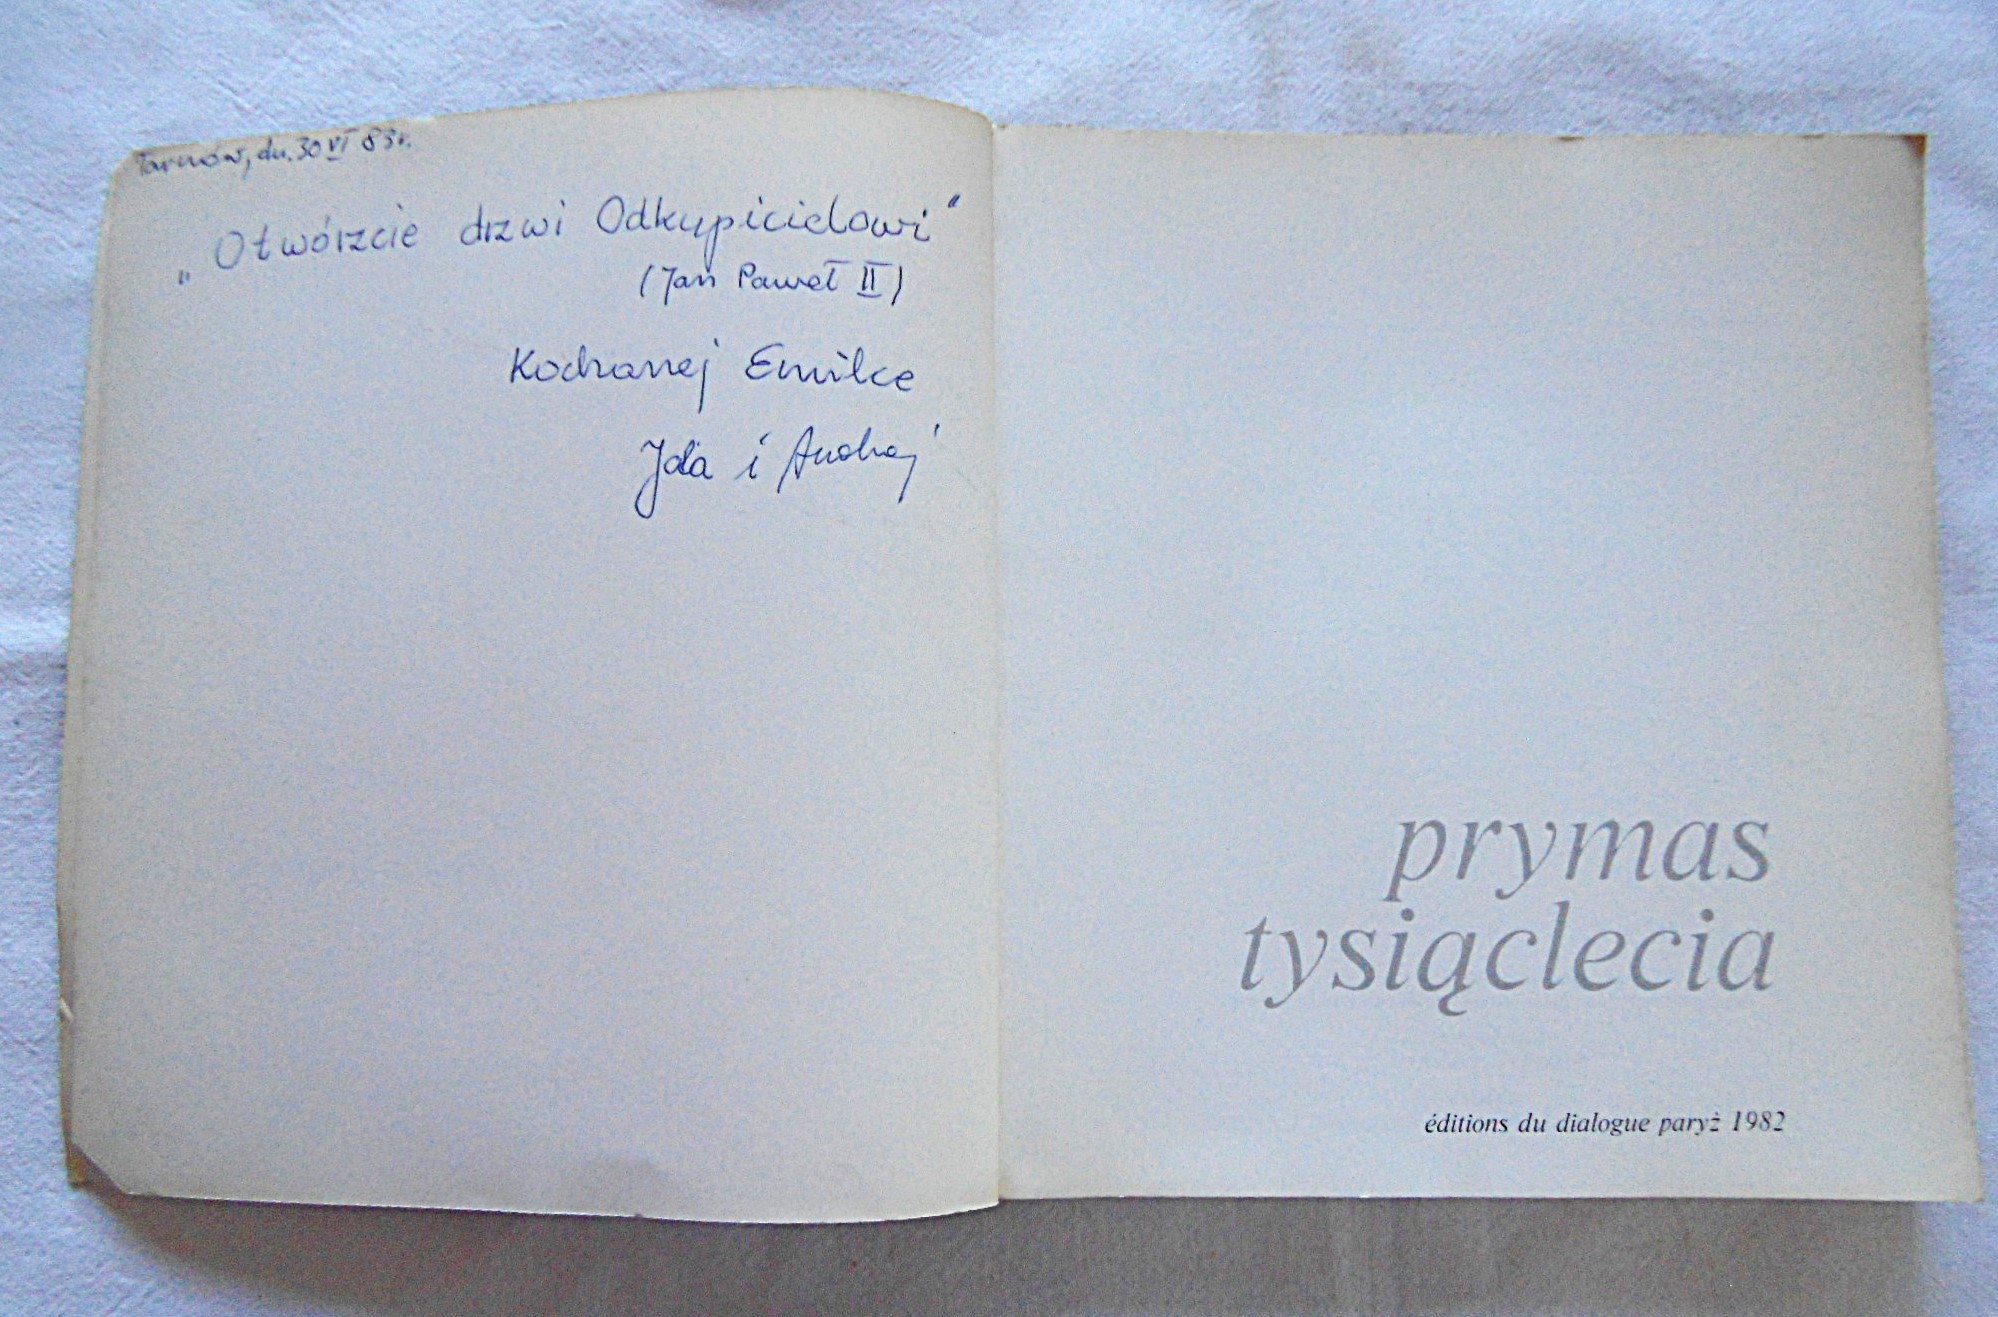 Tarnów, dn. 30 VI 83r.
„Otwórzcie drzwi Odkupicielowi"
(Jan Paweł II)
Kochanej Emilce
Jola i Andrzej
prymas
tysiąclecia
éditions du dialogue paryż 1982